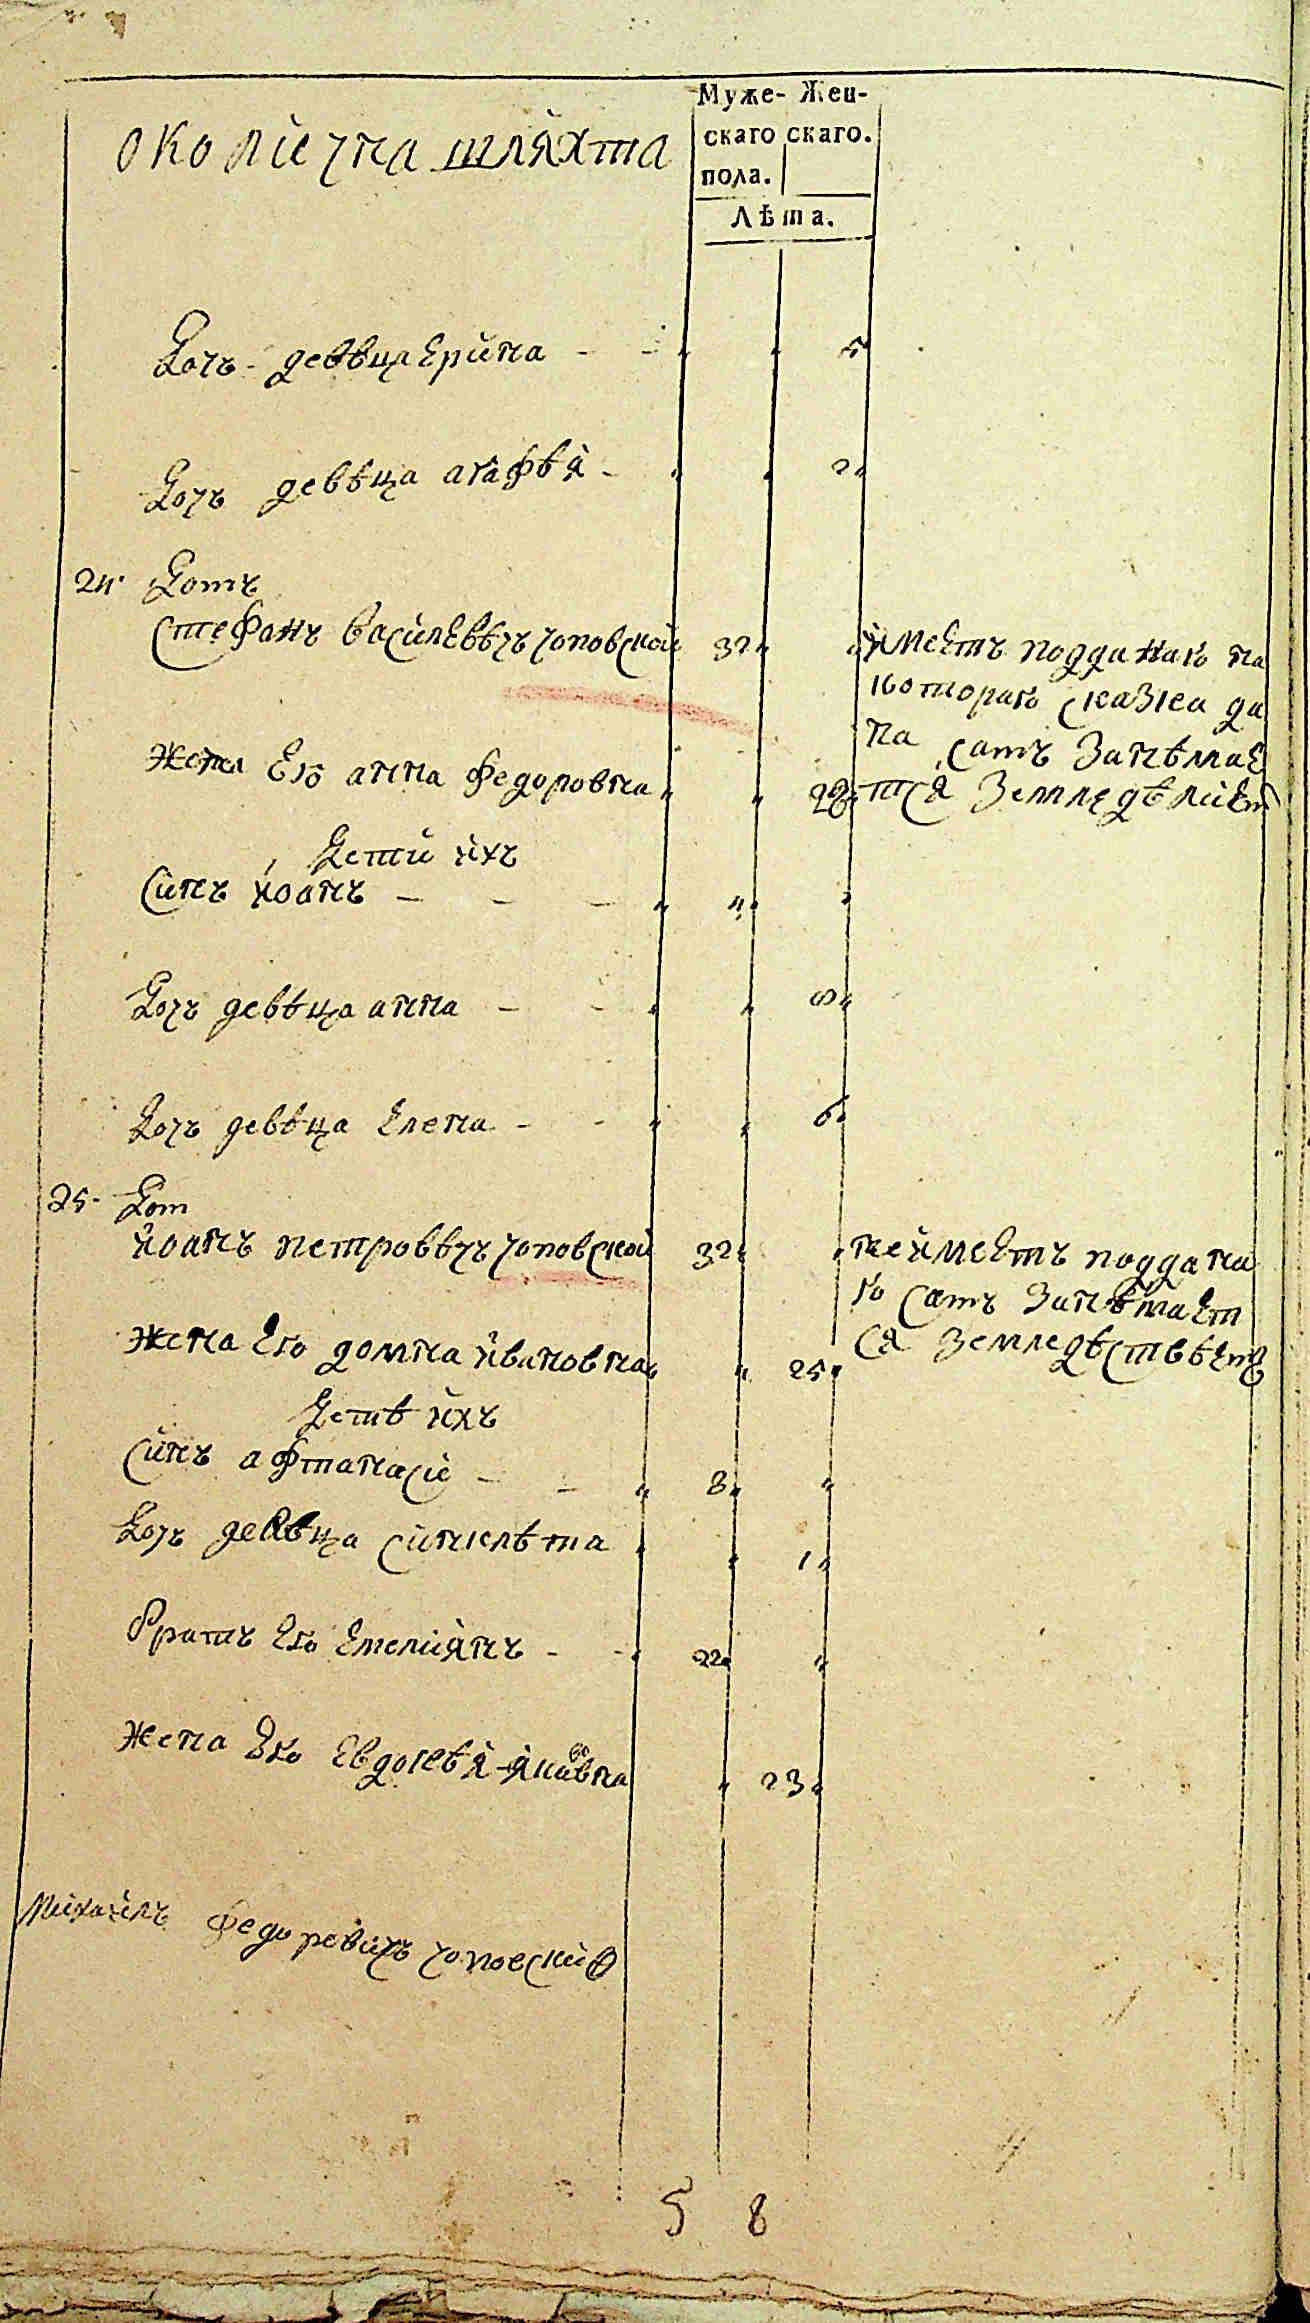 околіечна шляхта
Муже- Жен-
скаго скаго.
пола.
Лѣта.
Дочъ девѣца Ерина 5
Дочъ девѣца агафѣя 2
24. Дотъ
Стефанъ васілевѣчъ чоповской 32
имеетъ подданаго на
которого сказка да
на, самъ занѣмае
тся Земледѣліет
Жена Его анна федоровна 28
Дети ихъ
Синъ иоанъ 4
Дочъ девѣца анна 8
Дочъ девѣца Елена 6
25. Дот
иоанъ петровѣчъ чоповской 32
не имеетъ поддана
го самъ занѣмает
ся земледѣствѣем
Жена Его домна ивановна 25
Детѣ ихъ
Синъ афтанасіе 8
Дочъ девѣца синклѣта 1
Братъ Его Емеліянъ 22
Жена Его Евдокѣя яковна 23
Михаилъ федоревичъ чоповский
5 8